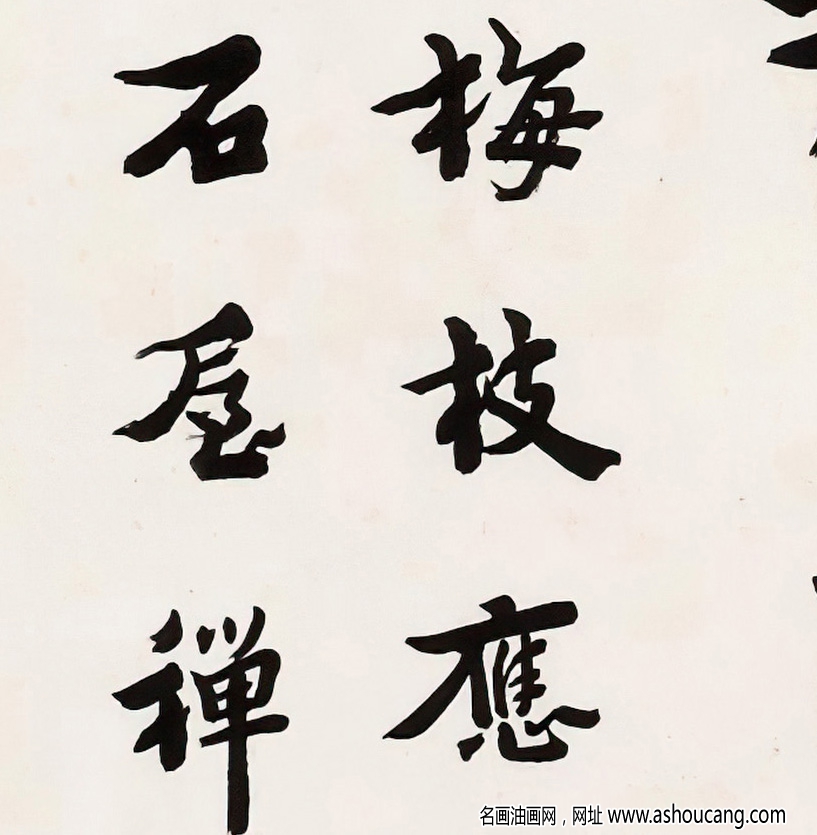 梅枝應
石屋禅
名画油画网，网址 www.ashoucang.com